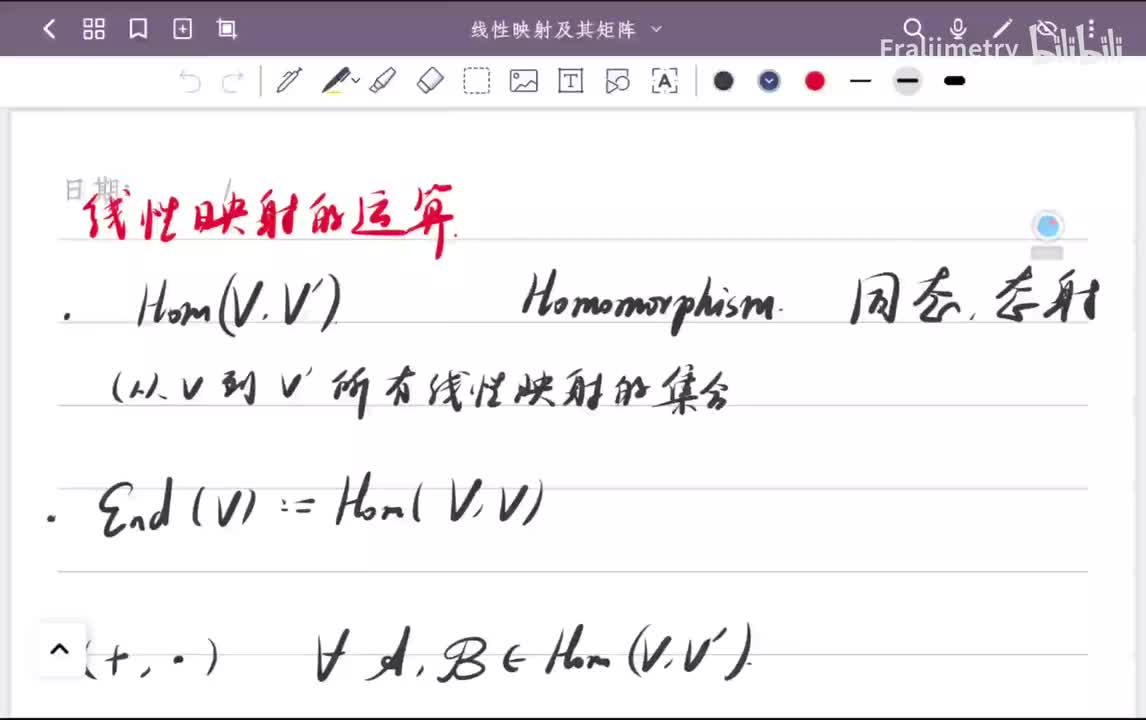 线性映射及其矩阵
Eraliimetry bilibili
日期: /
线性映射的运算.
· Hom(V, V′). Homomorphism. 同态, 态射
(从 V 到 V′ 所有线性映射的集合
· End(V) := Hom(V, V)
(+, ·) ∀ 𝒜, ℬ ∈ Hom(V, V′).